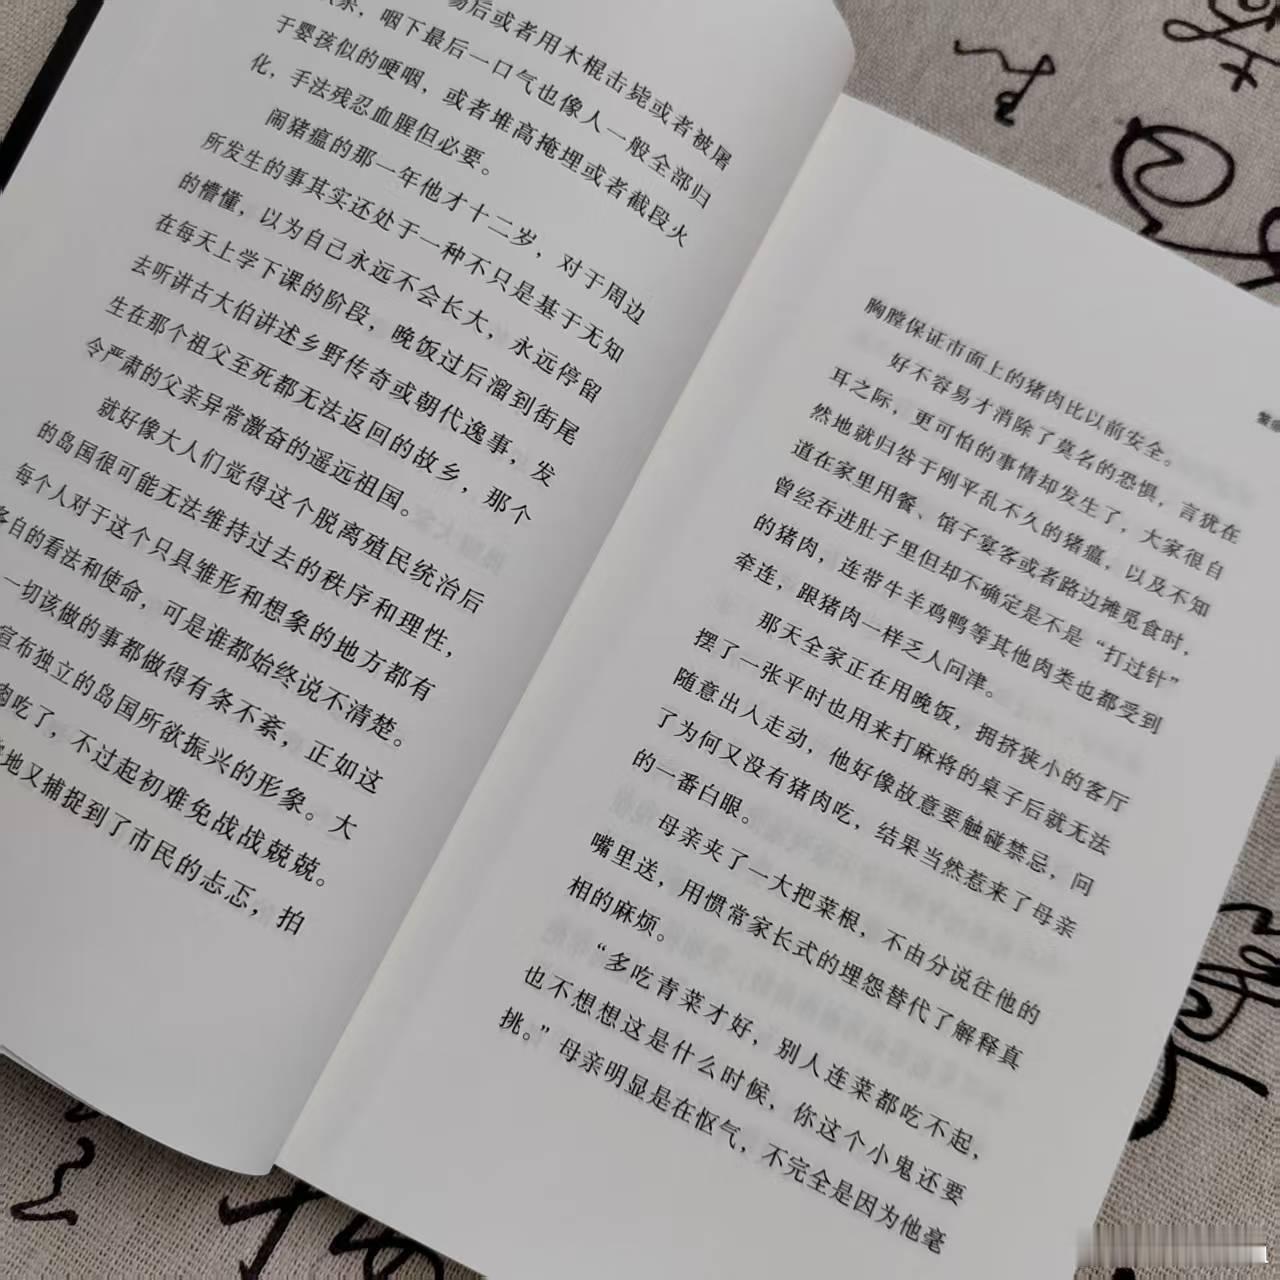 后或者用木棍击毙或者被屠
，咽下最后一口气也像人一般全部归
于婴孩似的哽咽，或者堆高掩埋或者截段火
化，手法残忍血腥但必要。
闹猪瘟的那一年他才十二岁，对于周边
所发生的事其实还处于一种不只是基于无知
的懵懂，以为自己永远不会长大，永远停留
在每天上学下课的阶段，晚饭过后溜到街尾
去听讲古大伯讲述乡野传奇或朝代逸事，发
生在那个祖父至死都无法返回的故乡，那个
令严肃的父亲异常激奋的遥远祖国。
就好像大人们觉得这个脱离殖民统治后
的岛国很可能无法维持过去的秩序和理性，
每个人对于这个只具雏形和想象的地方都有
各自的看法和使命，可是谁都始终说不清楚。
一切该做的事都做得有条不紊，正如这
宣布独立的岛国所欲振兴的形象。大
肉吃了，不过起初难免战战兢兢。
地又捕捉到了市民的忐忑，拍
胸膛保证市面上的猪肉比以前安全。
好不容易才消除了莫名的恐惧，言犹在
耳之际，更可怕的事情却发生了，大家很自
然地就归咎于刚平乱不久的猪瘟，以及不知
道在家里用餐、馆子宴客或者路边摊觅食时，
曾经吞进肚子里但却不确定是不是“打过针”
的猪肉，连带牛羊鸡鸭等其他肉类也都受到
牵连，跟猪肉一样乏人问津。
那天全家正在用晚饭，拥挤狭小的客厅
摆了一张平时也用来打麻将的桌子后就无法
随意出人走动，他好像故意要触碰禁忌，问
了为何又没有猪肉吃，结果当然惹来了母亲
的一番白眼。
母亲夹了一大把菜根，不由分说往他的
嘴里送，用惯常家长式的埋怨替代了解释真
相的麻烦。
“多吃青菜才好，别人连菜都吃不起，
也不想想这是什么时候，你这个小鬼还要
挑。”母亲明显是在怄气，不完全是因为他毫